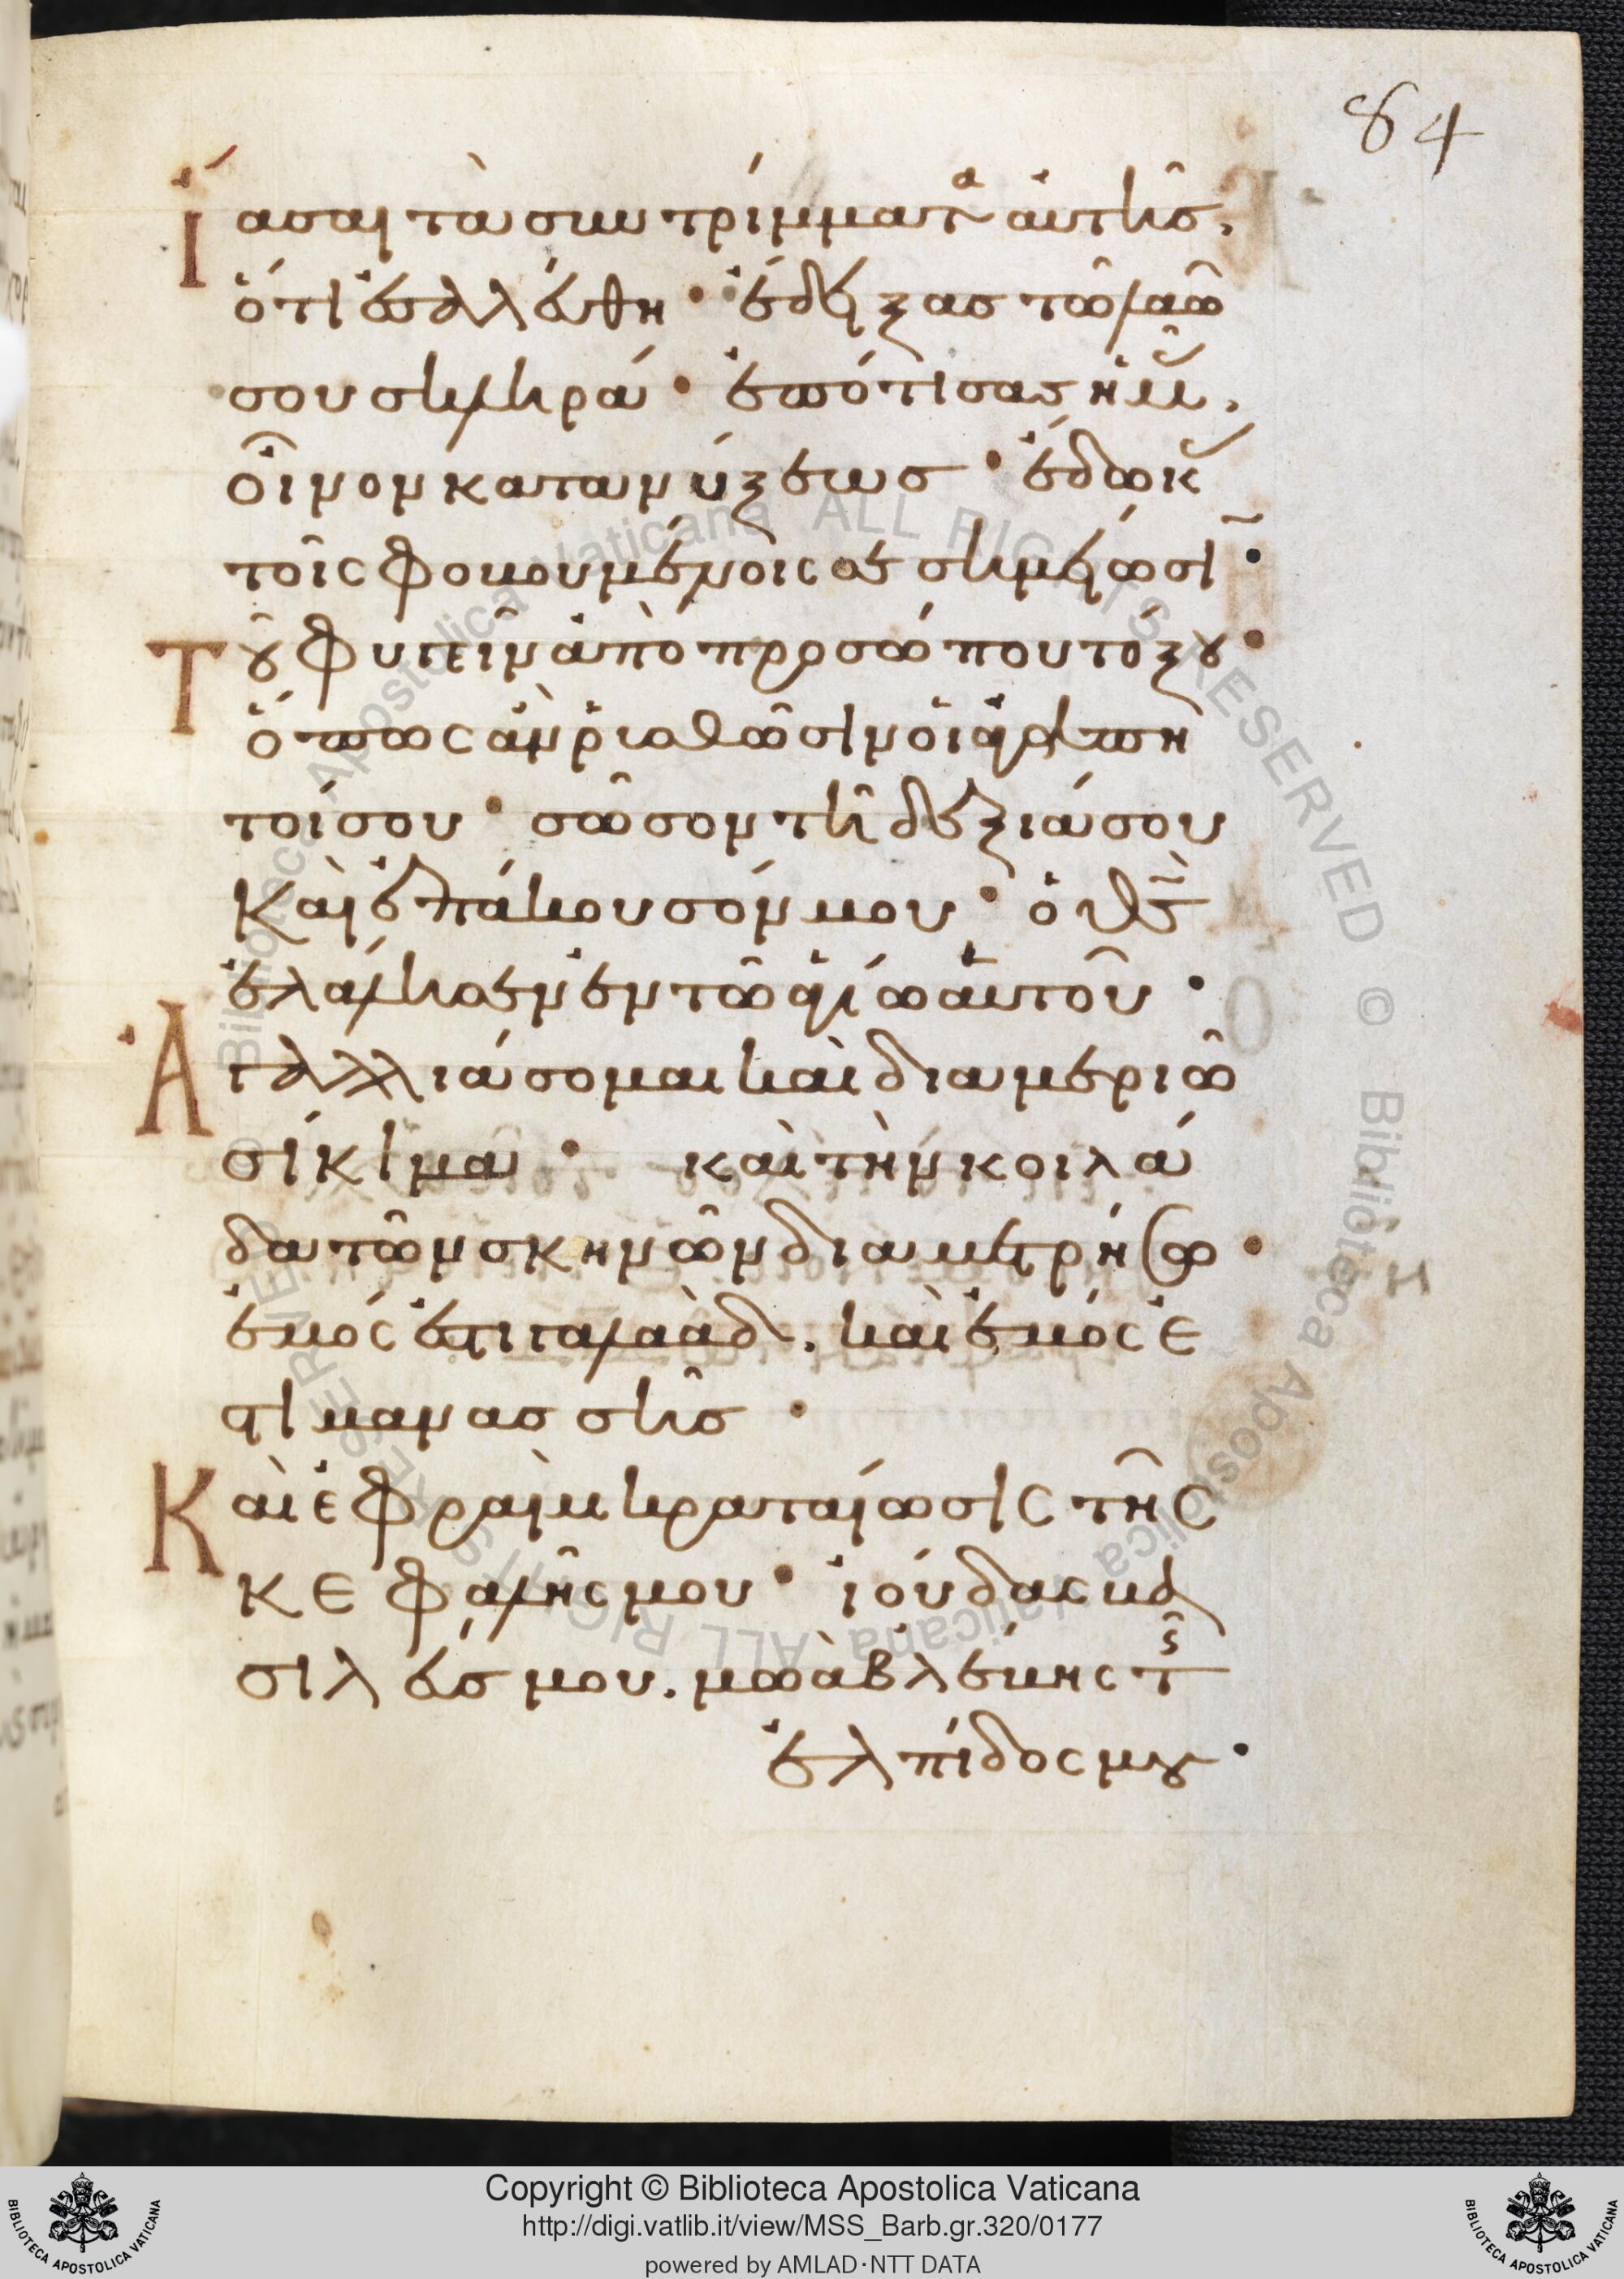 84
Ἴασαι τὰ συντρίμματα αὐτῆσ.
ὅτι ἐσαλεύθη · ἔδειξασ τῶ λαῶ
σου σκληρά · ἐπότισας ἡμᾶς
οἶνον κατανύξεωσ · ἔδωκας
τοῖς φοβουμένοις σε σημείωσιν ·
Τοῦ φυγεῖν ἀπὸ προσώπου τόξου ·
ὅπως ἂν ῥυσθῶσιν οἱ ἀγαπη
τοί σου · σῶσον τῆ δεξιᾶ σου
καὶ ἐπάκουσόν μου · ὁ θς
ἐλάλησεν ἐν τῶ ἁγίω αὐτοῦ ·
Ἀγαλλιάσομαι καὶ διαμεριῶ
σίκιμα · καὶ τὴν κοιλά
δα τῶν σκηνῶν διαμετρήσω ·
ἐμός ἐστι γαλαὰδ. καὶ ἐμός ἐ
στι μανασσῆσ ·
Καὶ ἐφραὶμ κραταίωσις τῆς
κεφαλῆς μου · ἰούδας βα
σιλεύσ μου. μωὰβ λέβης τῆς
ἐλπίδος μου ·
Copyright © Biblioteca Apostolica Vaticana
http://digi.vatlib.it/view/MSS_Barb.gr.320/0177
powered by AMLAD·NTT DATA
BIBLIOTECA APOSTOLICA VATICANA
BIBLIOTECA APOSTOLICA VATICANA
© Biblioteca Apostolica Vaticana ALL RIGHTS RESERVED © Biblioteca Apostolica Vaticana ALL RIGHTS RESERVED